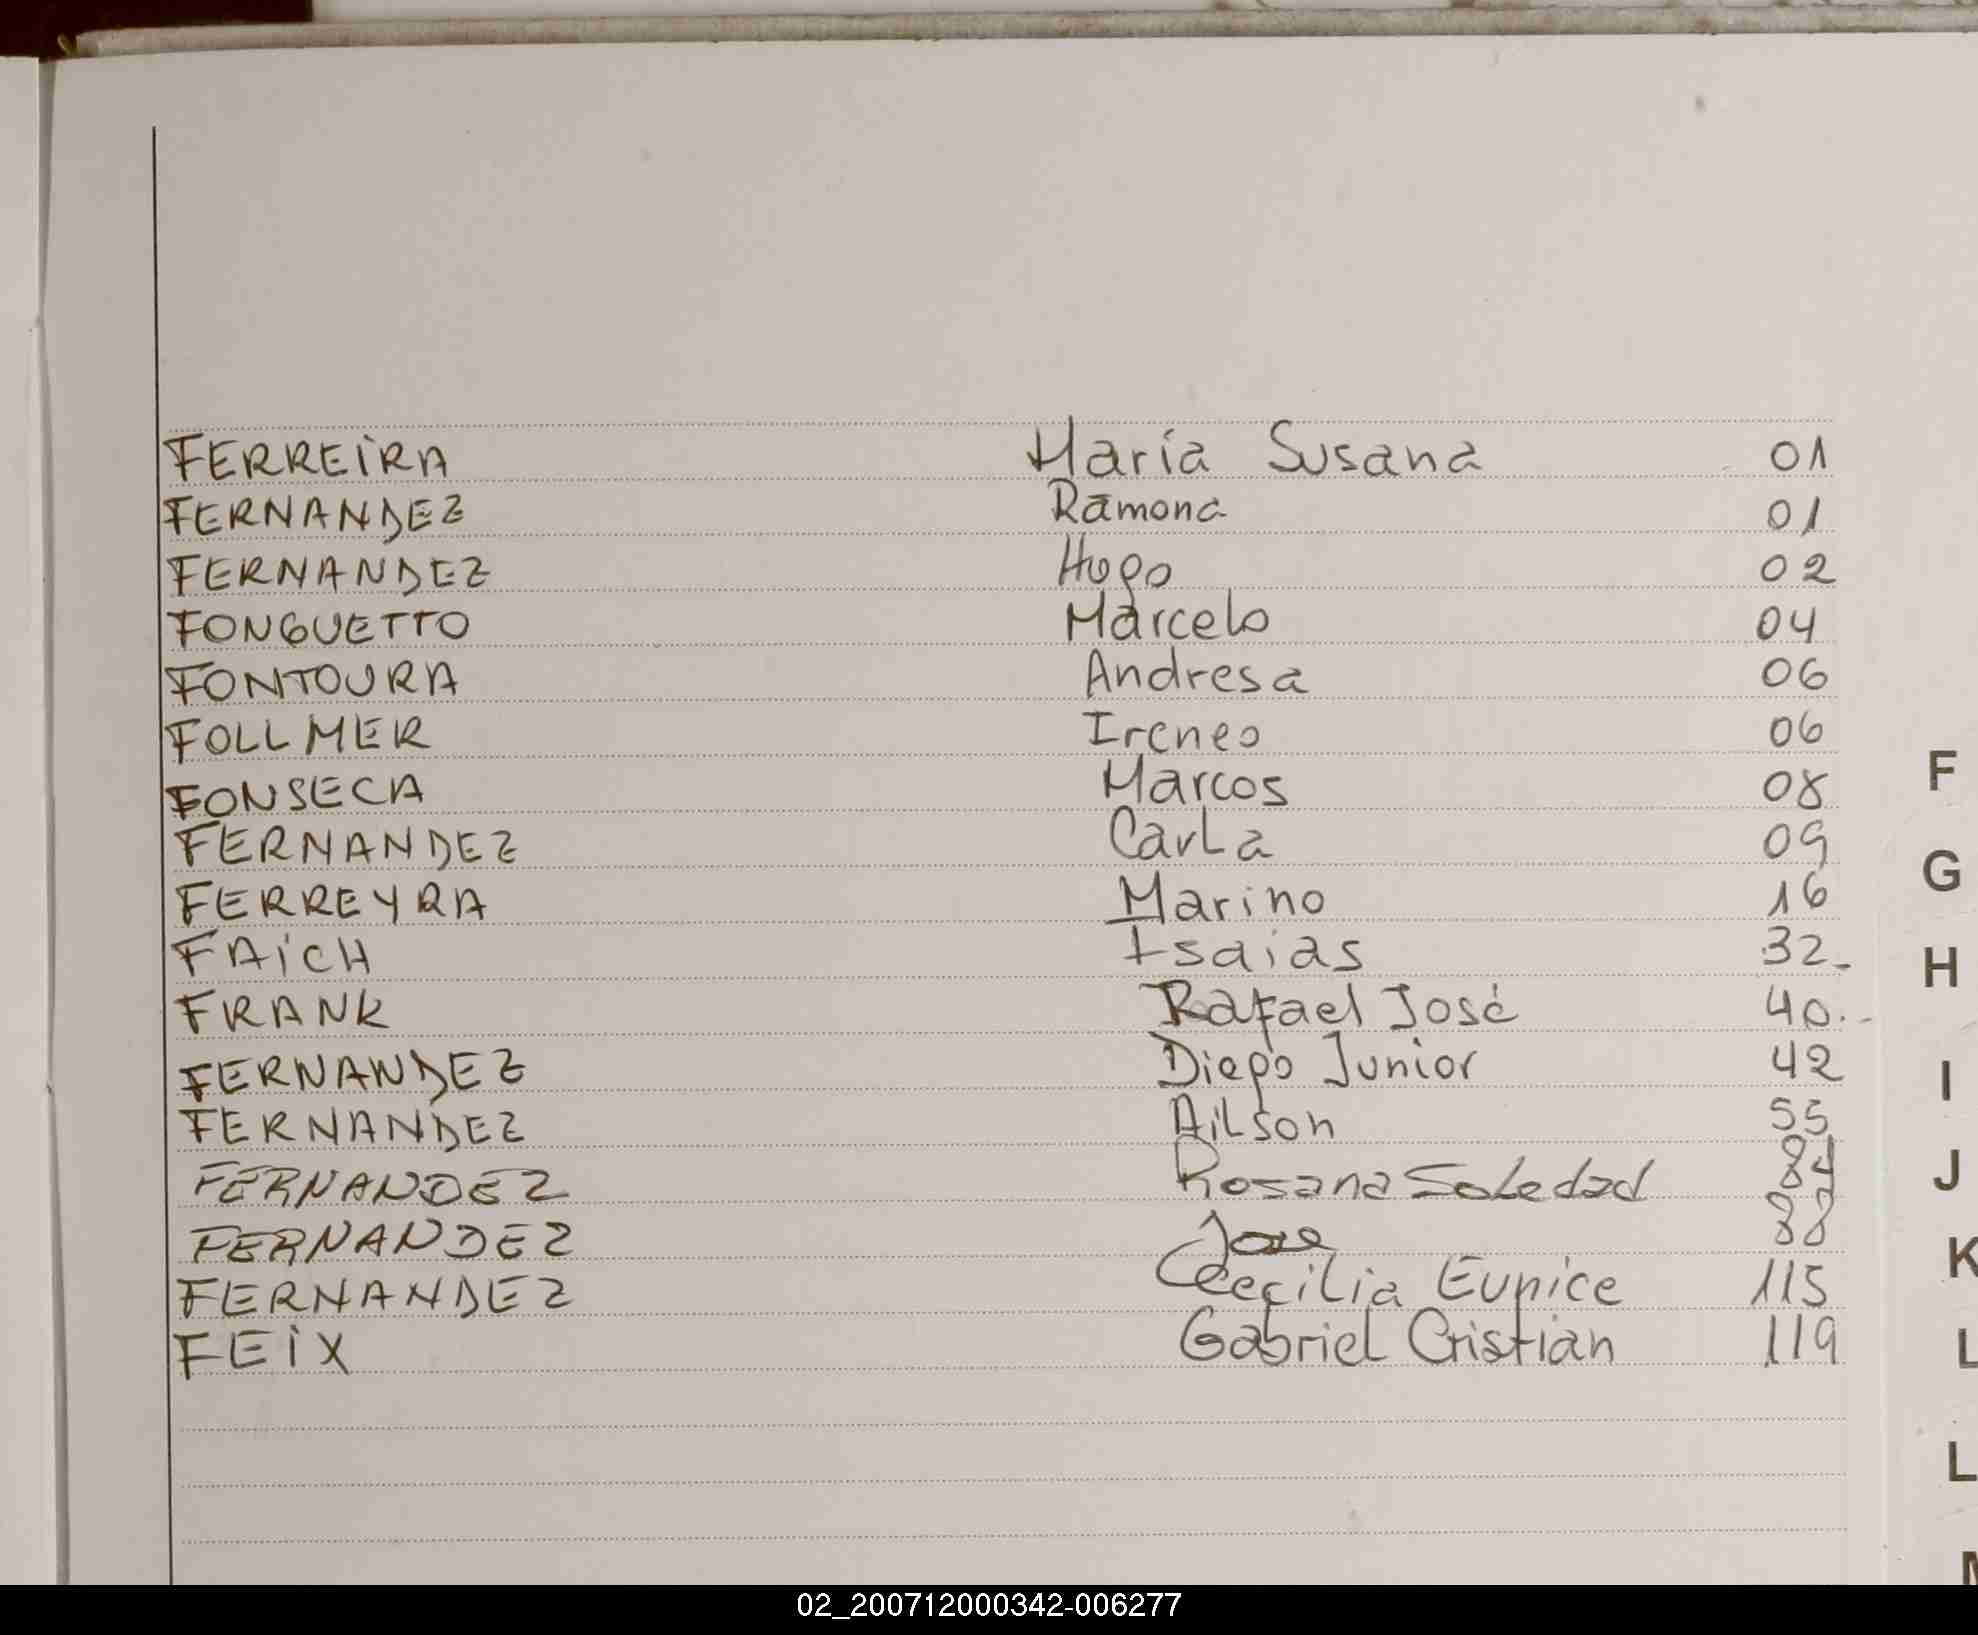 FERREIRA María Susana 01
FERNANDEZ Ramona 01
FERNANDEZ Hugo 02
FONGUETTO Marcelo 04
FONTOURA Andresa 06
FOLLMER Ireneo 06
FONSECA Marcos 08
FERNANDEZ Carla 09
FERREYRA Marino 16
FAICH Isaias 32
FRANK Rafael José 40
FERNANDEZ Diego Junior 42
FERNANDEZ Ailson 55
FERNANDEZ Rosana Soledad 84
FERNANDEZ Jose 88
FERNANDEZ Cecilia Eunice 115
FEIX Gabriel Cristian 119
F
G
H
I
J
K
L
L
02_200712000342-006277